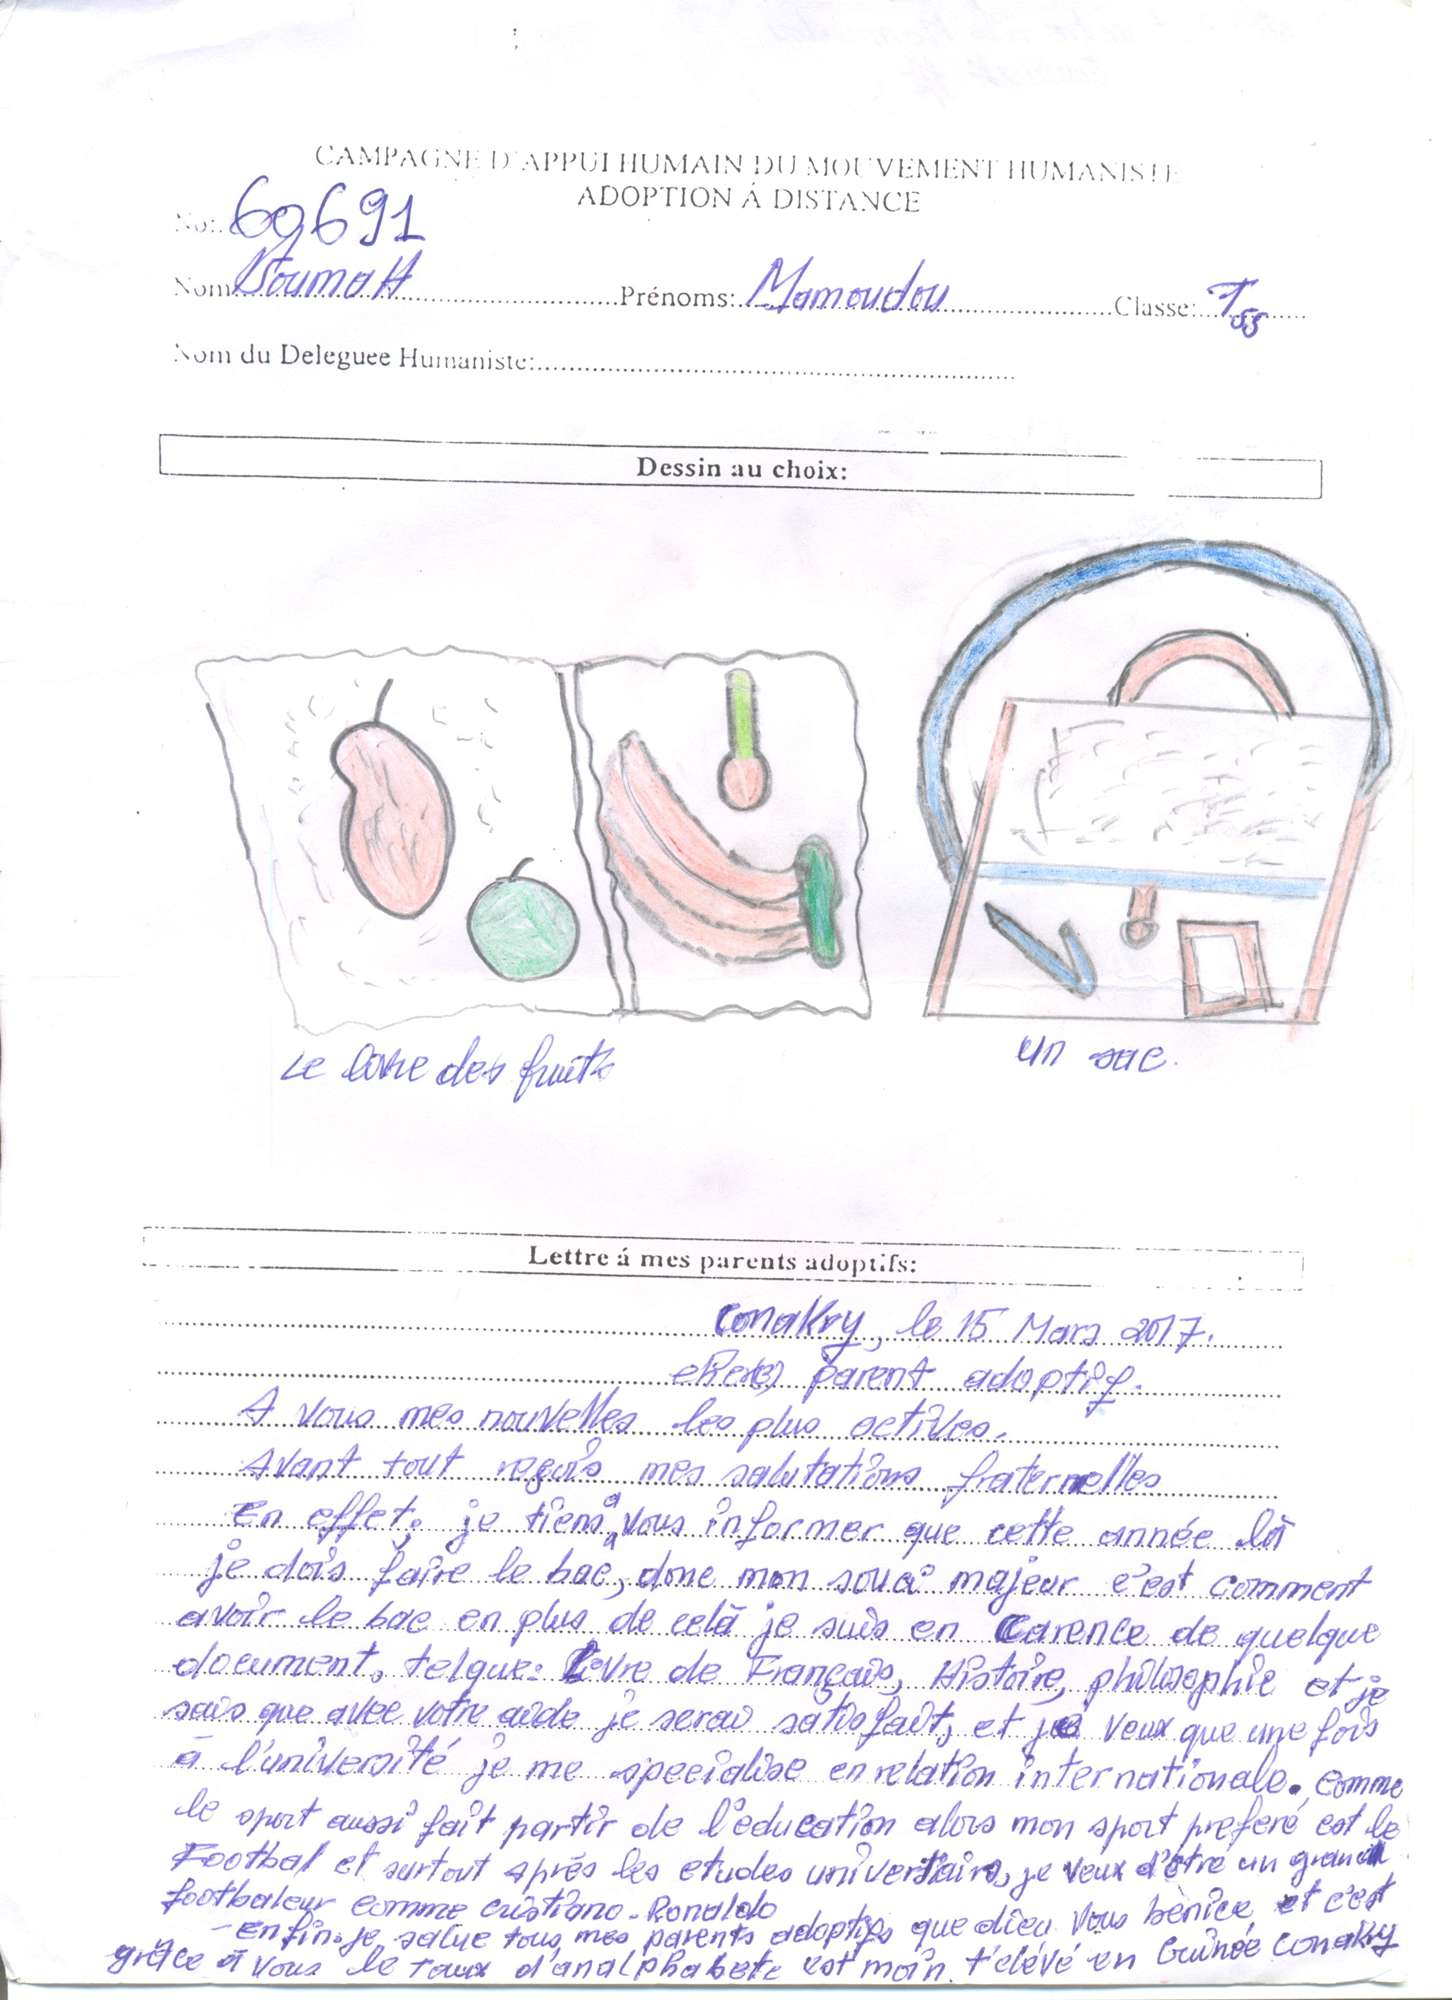 CAMPAGNE D'APPUI HUMAIN DU MOUVEMENT HUMANISTE
ADOPTION Á DISTANCE
No: 69691
Nom SoumaH Prénoms: Mamoudou Classe: TSS
Nom du Deleguee Humaniste:
Dessin au choix:
Le livre des fruits
un sac.
Lettre á mes parents adoptifs:
Conakry, le 15 Mars 2017.
cher(e) parent adoptif.
A vous mes nouvelles les plus actives.
Avant tout reçois mes salutations fraternelles
En effet, je tiens à vous informer que cette année là
je dois faire le bac, donc mon souci majeur c'est comment
avoir le bac en plus de celà je suis en Carence de quelque
document, telque: Livre de Français, Histoire, philosophie et je
sais que avec votre aide je serai satisfait, et je veux que une fois
à l'université je me specialise en relation internationale. Comme
le sport aussi fait partir de l'education alors mon sport preferé est le
Footbal et surtout après les etudes je veux d'être un grand
footbaleur comme cristiano-Ronaldo
- enfin-je salue tous mes parents adoptifs que dieu vous bénice et c'est
grâce à vous le taux d'analphabete est moin t'élévé en Guinée Conakry